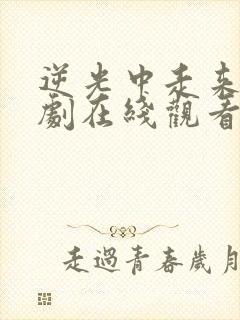 逆光中走来
劇在綫觀看
走過青春歲月